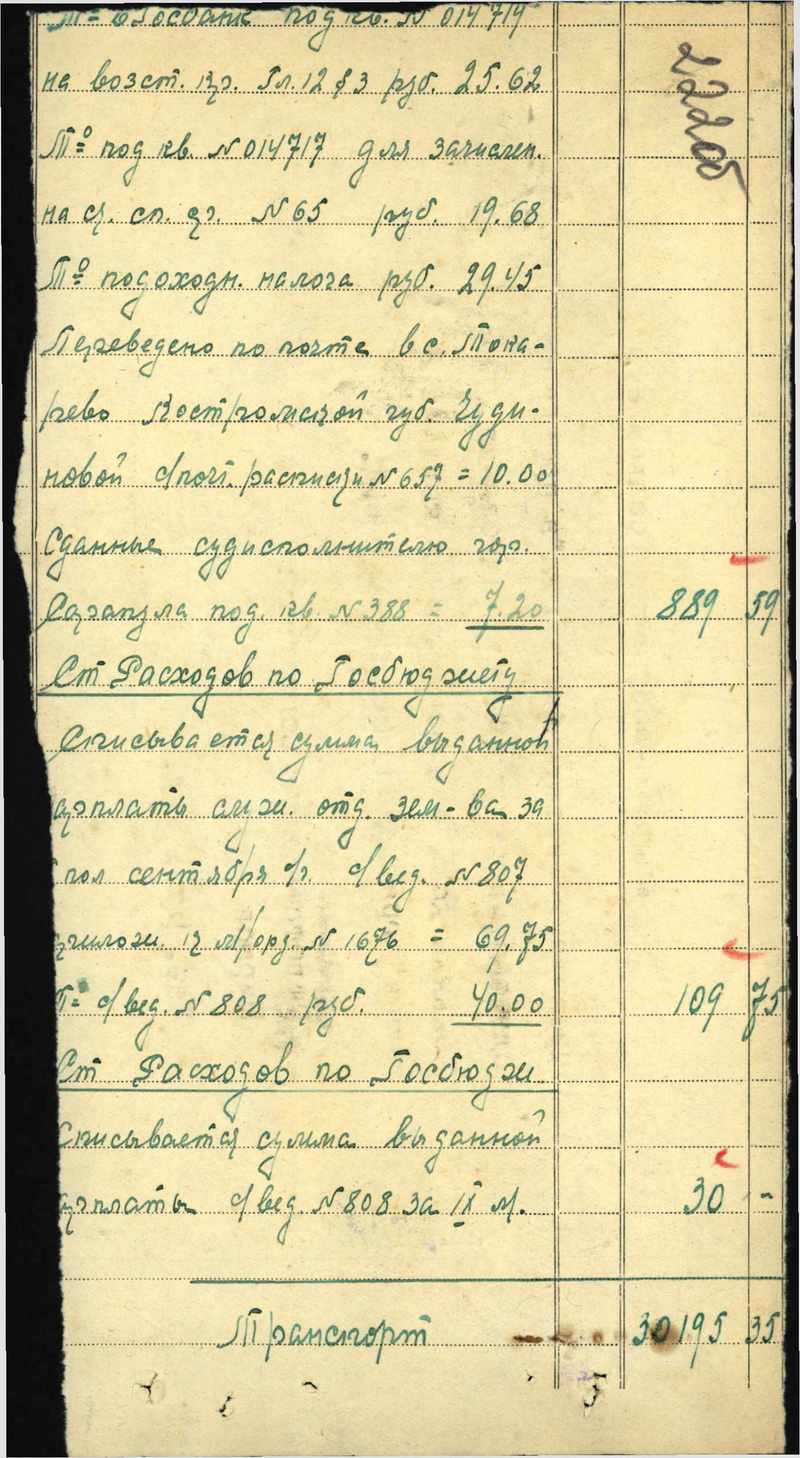 Т⁰ в Госбанк под кв. № 014719
на возст. кр. Гл. 12 § 3 руб. 25.62
Т⁰ под кв. № 014717 для зачислен.
на сч. сп. ср. № 65 руб. 19.68
Т⁰ подоходн. налога руб. 29.45
Переведено по почте в с. Тока-
рево Костромской губ. Чуди-
новой с/почт. расписки № 657 = 10.00
Сданные судисполнителю гор.
Сарапула под. кв. № 388 = 7.20 889 59
Ст Расходов по Госбюджету
Списывается сумма выданной
зарплаты служ. отд. зем-ва за
пол сентября с/г. с/вед. № 807
прилож. к М/орд. № 1676 = 69.75
Т= с/вед. № 808 руб. 40.00 109 75
Ст Расходов по Госбюдж
Списывается сумма выданной
зарплаты с/вед. № 808 за IX м. 30 -
Транспорт 30195 35